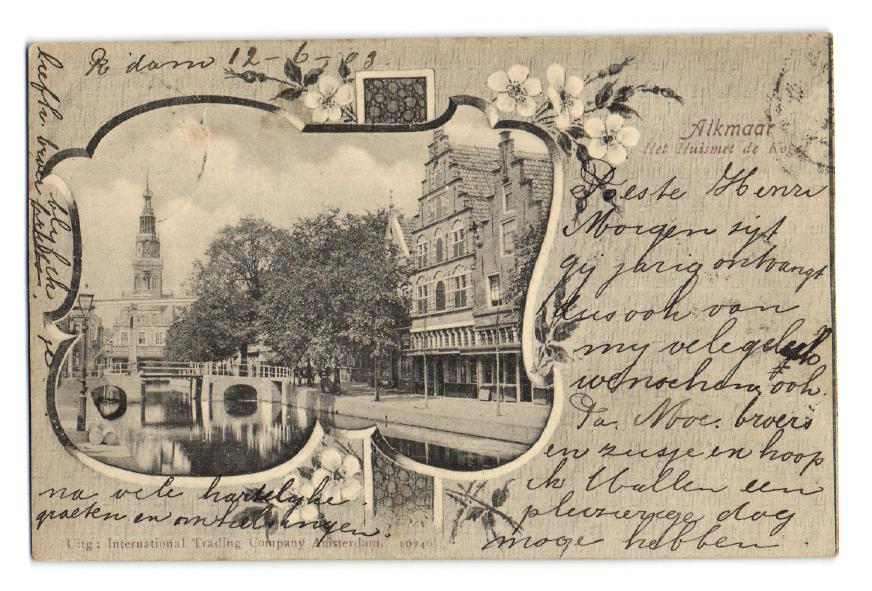 R dam 12-6-03.
Alkmaar
Het Huis met de Kogel
Beste Henri
Morgen zijt
gij jarig ontvangt
dus ook van
my vele geluk
wenschen, ook.
Pa. Moe. broers
en zusje en hoop
ik Ullen een
plezierige dag
moge hebben.
na vele hartelijke
groeten en omhelsingen.
blijf ik je
liefh. broer
Uitg: International Trading Company Amsterdam. 10246